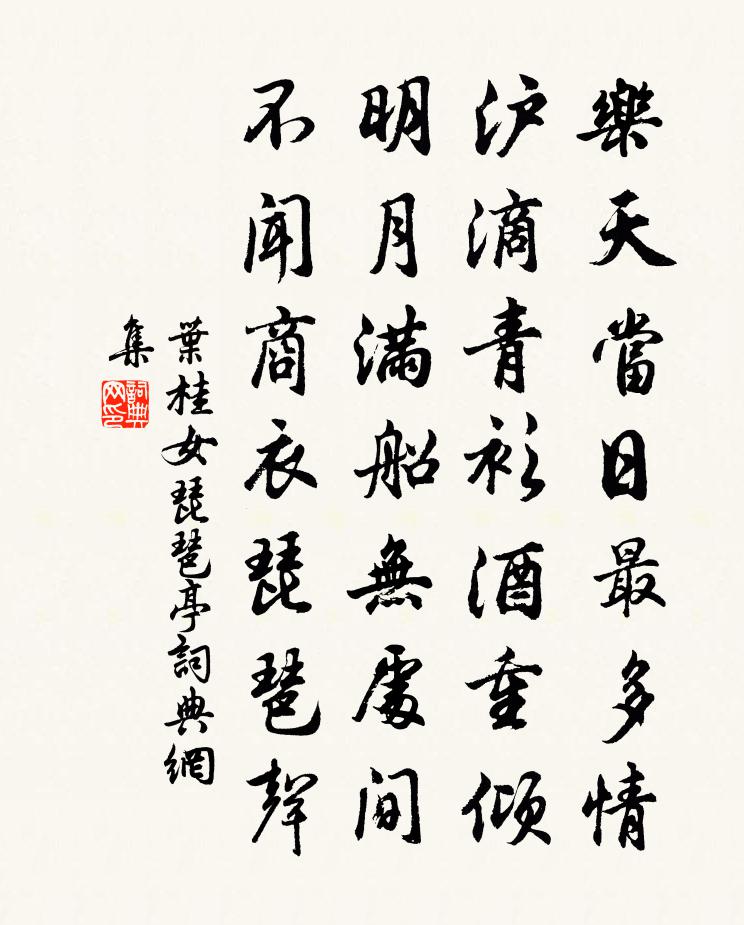 樂天當日最多情
沪滴青衫酒重傾
明月滿船無處間
不聞商衣琵琶聲
葉桂女琵琶亭詞典網
集
詞典網印